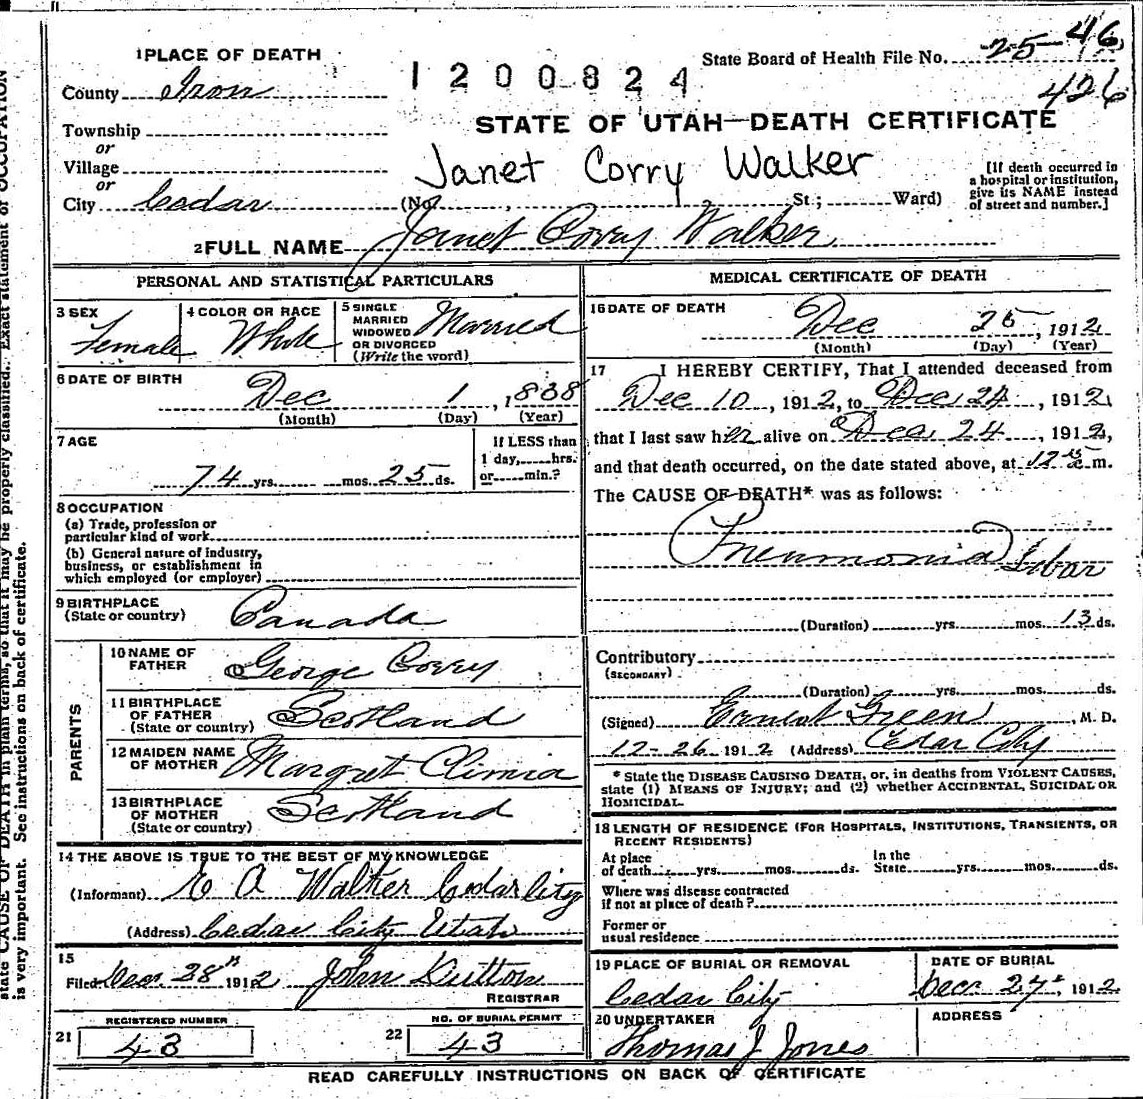 state CAUSE OF DEATH in plain terms, so that it may be properly classified. Exact statement of OCCUPATION
is very important. See instructions on back of certificate.
1 PLACE OF DEATH
State Board of Health File No. 25-46
426
1200824
County Iron
STATE OF UTAH—DEATH CERTIFICATE
Township
or
Village
or
City Cedar
Janet Corry Walker
(No. , St.; Ward)
[If death occurred in
a hospital or institution,
give its NAME instead
of street and number.]
2 FULL NAME Janet Corry Walker
PERSONAL AND STATISTICAL PARTICULARS
3 SEX
Female
4 COLOR OR RACE
White
5 SINGLE
MARRIED
WIDOWED
OR DIVORCED
(Write the word)
Married
6 DATE OF BIRTH
Dec 1, 1838
(Month) (Day) (Year)
7 AGE
74 yrs. mos. 25 ds.
If LESS than
1 day, hrs.
or min.?
8 OCCUPATION
(a) Trade, profession or
particular kind of work
(b) General nature of industry,
business, or establishment in
which employed (or employer)
9 BIRTHPLACE
(State or country)
Canada
PARENTS
10 NAME OF
FATHER
George Corry
11 BIRTHPLACE
OF FATHER
(State or country)
Scotland
12 MAIDEN NAME
OF MOTHER
Margret
13 BIRTHPLACE
OF MOTHER
(State or country)
Scotland
14 THE ABOVE IS TRUE TO THE BEST OF MY KNOWLEDGE
(Informant) E A Walker Cedar City
(Address) Cedar City Utah
15
Filed Dec. 28th 1912 John Dutton
REGISTRAR
21 REGISTERED NUMBER
43
22 NO. OF BURIAL PERMIT
43
MEDICAL CERTIFICATE OF DEATH
16 DATE OF DEATH
Dec 25, 1912
(Month) (Day) (Year)
17 I HEREBY CERTIFY, That I attended deceased from
Dec 10, 1912, to Dec 24, 1912,
that I last saw her alive on Dec. 24, 1912,
and that death occurred, on the date stated above, at 12 m.
The CAUSE OF DEATH* was as follows:
Pneumonia Lobar
(Duration) yrs. mos. 13 ds.
Contributory
(SECONDARY)
(Duration) yrs. mos. ds.
(Signed) Ernest Green, M. D.
12-26 1912 (Address) Cedar City
* State the DISEASE CAUSING DEATH, or, in deaths from VIOLENT CAUSES,
state (1) MEANS OF INJURY; and (2) whether ACCIDENTAL, SUICIDAL OR
HOMICIDAL.
18 LENGTH OF RESIDENCE (FOR HOSPITALS, INSTITUTIONS, TRANSIENTS, OR
RECENT RESIDENTS)
At place
of death yrs. mos. ds.
In the
State yrs. mos. ds.
Where was disease contracted
if not at place of death?
Former or
usual residence
19 PLACE OF BURIAL OR REMOVAL
Cedar City
DATE OF BURIAL
Dec. 27, 1912
20 UNDERTAKER
Thomas J Jones
ADDRESS
READ CAREFULLY INSTRUCTIONS ON BACK OF CERTIFICATE